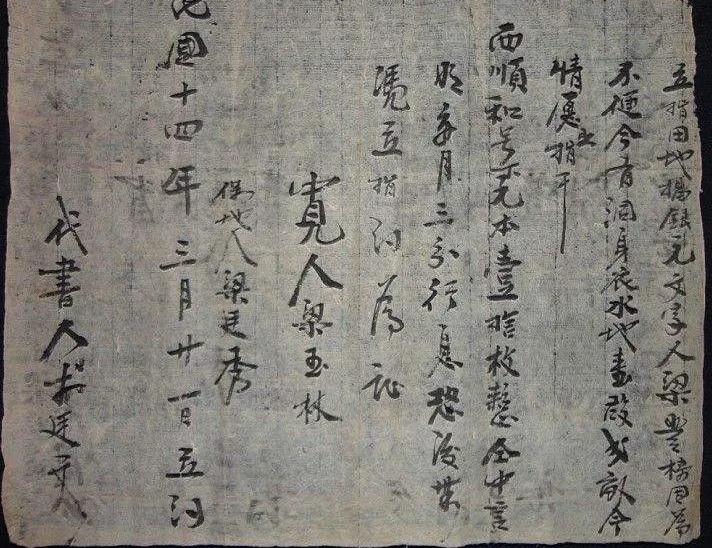 立指田地揭銀元文字人梁豐榜因為
不便今有酒身衣水地壹段弍畝今
情愿立指干
西順和号本壹拾枚整仝中言
明每月三分行息恐後無
憑立指約為証
寛人梁玉林
保地人梁廷秀
民國十四年三月廿一日立約
代書人廷